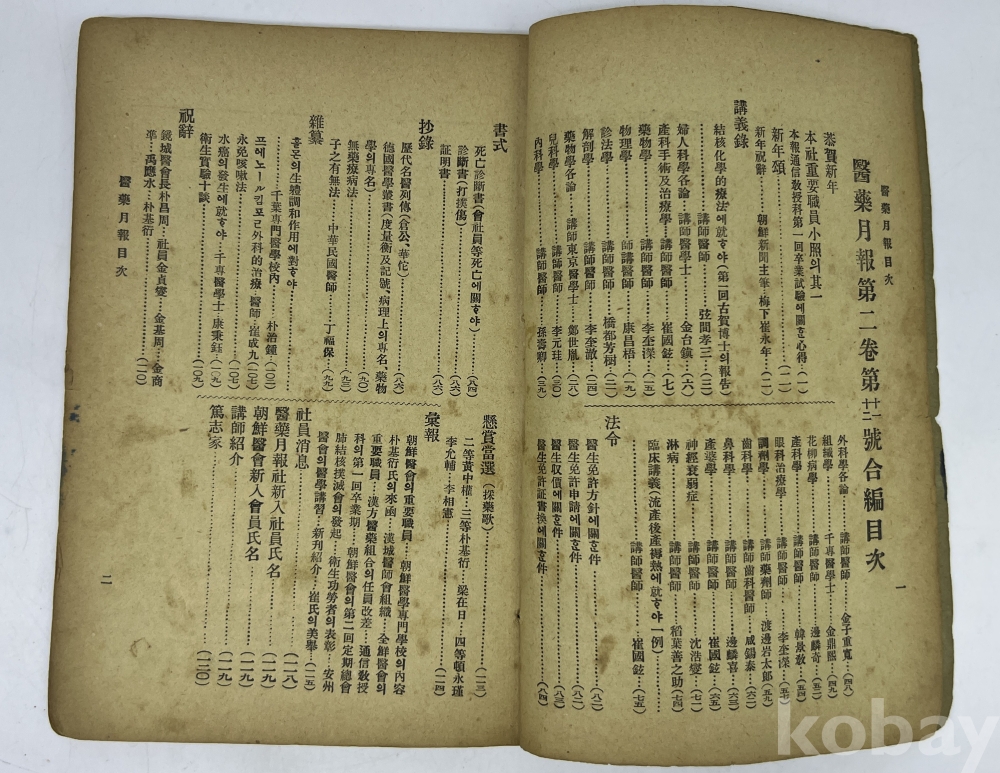 醫藥月報目次
醫藥月報第二卷第十一二號合編目次
恭賀新年
本社重要職員小照의其一
本報通信敎授科第一回卒業試驗에關ᄒᆞᆫ心得…(一)
新年頌
新年祝辭………朝鮮新聞主筆 梅下崔永年…(二)
講義錄
結核化學的療法에就ᄒᆞ야(第二回古賀博士의報告)
………講師醫師……弦間孝三…(三)
婦人科學各論…講師醫學士…金台鎭…(六)
產科手術及治療學…講師醫師…崔國鉉…(七)
藥物學………講師醫師……李奎濚…(一五)
物理學………講師醫師……康昌梧…(一九)
診法學………講師醫師……橋都芳樹…(二一)
解剖學………講師醫師……李奎澈…(二四)
藥物學各論……講師東京醫學士…鄭世胤…(二八)
兒科學………講師醫師……李元珪…(三〇)
內科學………講師醫師……孫壽卿…(三九)
外科學各論…講師醫師……金子重寬…(四八)
組織學………千專醫學士…金鼎熙…(四九)
花柳病學……講師醫師……邊麟奇…(五二)
產科學………講師醫師……韓景敎…(五四)
眼科治療學…講師醫師……李奎濚…(五七)
調劑學………講師藥劑師…渡邊岩太郞…(五九)
齒科學………講師齒科醫師…咸錫泰…(六二)
鼻科學………講師醫師……邊麟喜…(六三)
產婆學………講師醫師……崔國鉉…(六五)
神經衰弱症…講師醫師……沈浩燮…(七二)
淋病…………講師醫師……稻葉善之助…(七四)
臨床講義(流產後產褥熱에就ᄒᆞ야一例)
………講師醫師……崔國鉉…(七五)
法令
醫生免許方針에關ᄒᆞᆫ件………(八二)
醫生免許申請에關ᄒᆞᆫ件………(八二)
醫生取價에關ᄒᆞᆫ件………(八三)
醫生免許証書換에關ᄒᆞᆫ件………(八四)
一
書式
死亡診斷書(會社員等死亡에關ᄒᆞ야)…(八四)
診斷書(打撲傷)………(八六)
証明書………(八六)
抄錄
歷代名醫列傳(倉公、華佗)………(八六)
德國醫學叢書(度量衡及記號、病理上의專名、藥物
學의專名)
無藥療病法
子之有無法……中華民國醫師……丁福保…(九九)
雜纂
흘몬의生體調和作用에對ᄒᆞ야
………千葉專門醫學校內……朴治鍾…(一〇二)
永免咳嗽法………(一〇七)
水癌의發生에就ᄒᆞ야…千專醫學士…康秉鈺…(一〇九)
衛生實驗十談………(一〇九)
祝辭
鏡城醫會長朴昌周…社員金貞燮…金基周…金商
準…禹應水…朴基衍………(一一〇)
懸賞當選(採藥歌)………(一一三)
二等黃中權…三等朴基衍…梁在日…四等頓永瑾
李允輔…李相憲………(一一四)
彙報
朝鮮醫會의重要職員…朝鮮醫學專門學校의內容
朴基衍氏의來函…漢城醫師會組織…全鮮醫會의
重要職員…漢方醫藥組合의任員改差…通信敎授
科의第一回卒業期…朝鮮醫會의第二回定期總會
肺結核撲滅會의發起…衛生功勞者의表彰…安州
醫會의醫學講習…新刊紹介…崔氏의美擧…(一一五)
社員消息
醫藥月報社新入社員氏名………(一一八)
朝鮮醫會新入會員氏名………(一一九)
講師紹介………(一一九)
篤志家………(一二〇)
醫藥月報目次
二
kobay